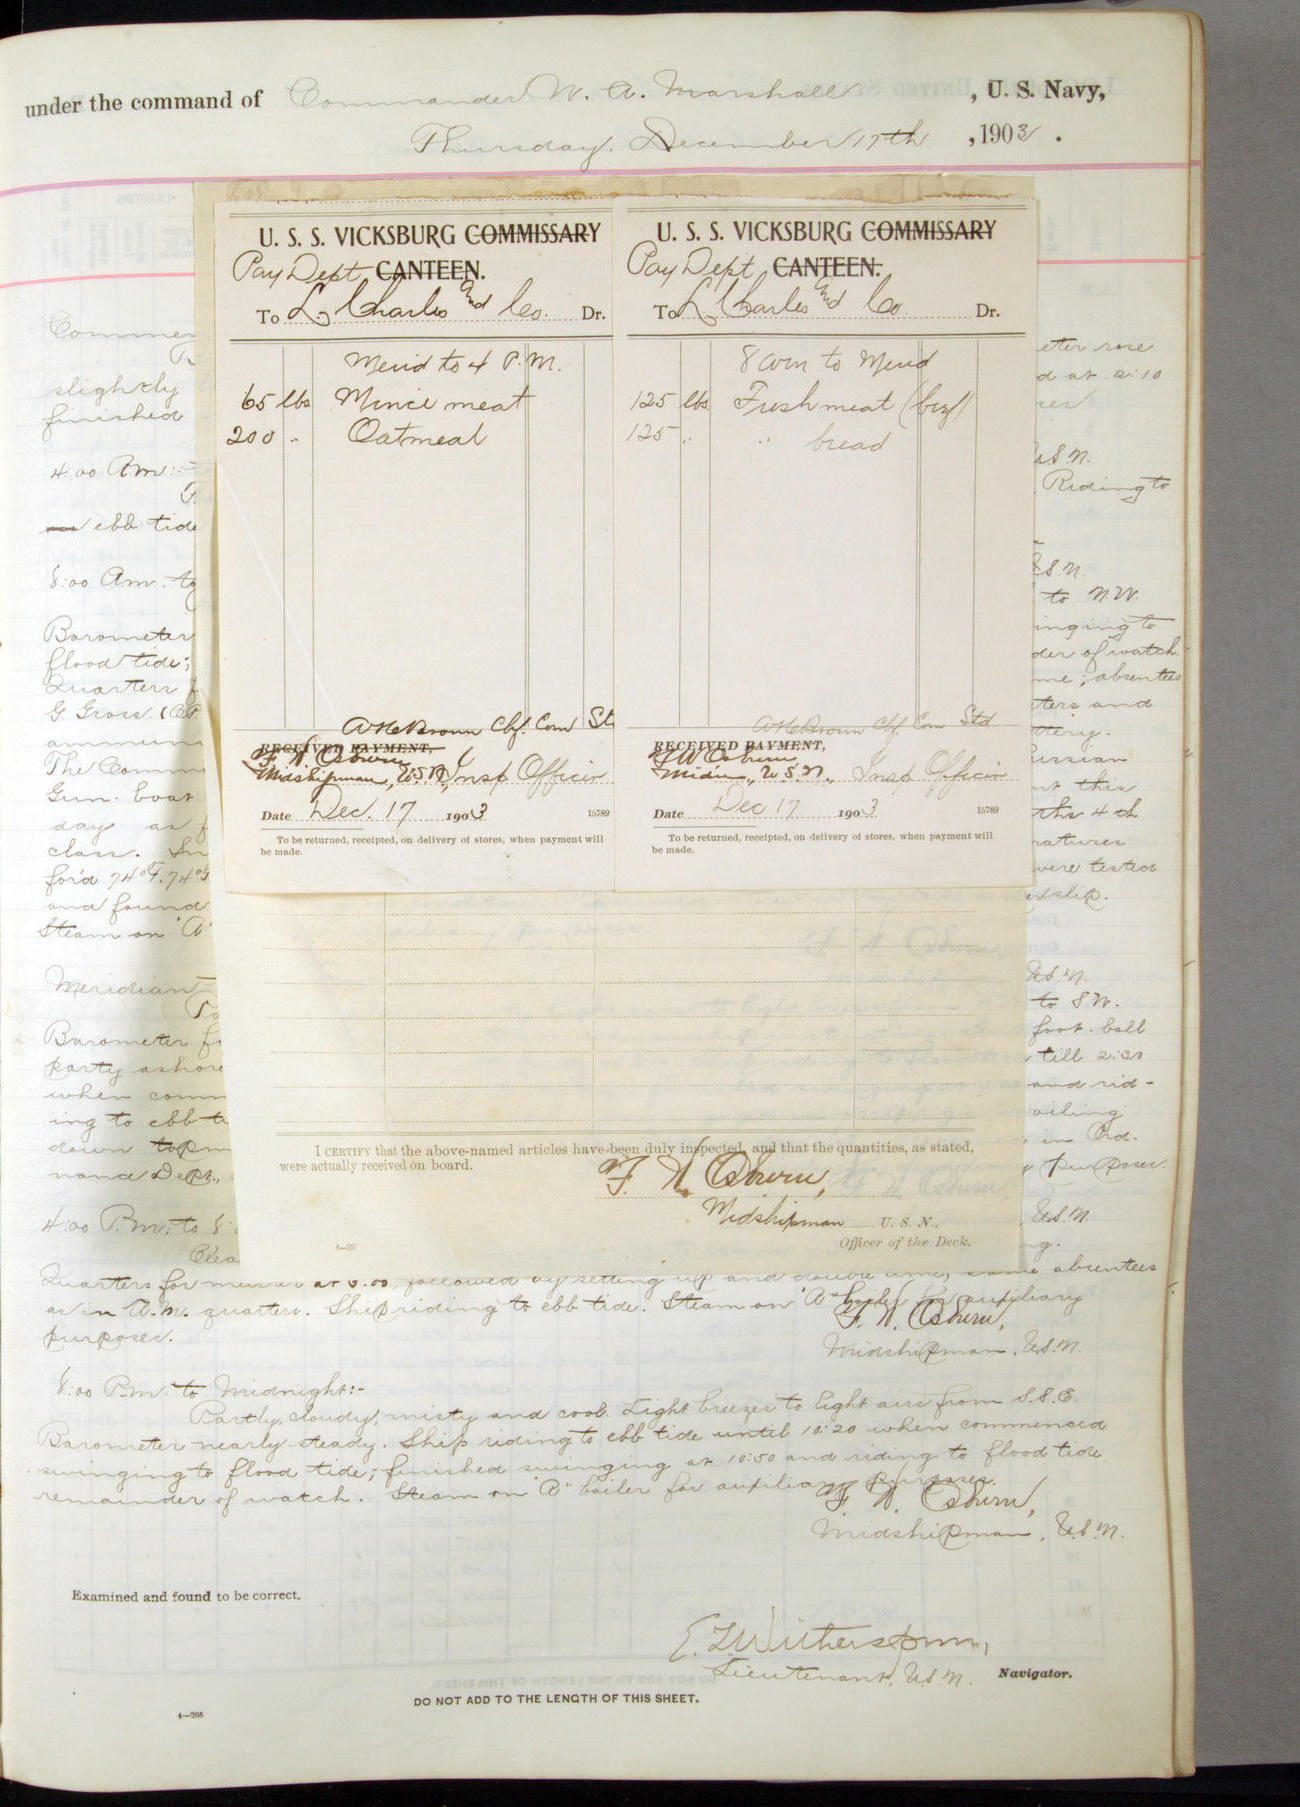 under the command of Commander W. A. Marshall, U. S. Navy,
Thursday, December 17th, 1903.
U. S. S. VICKSBURG COMMISSARY
Pay Dept CANTEEN.
To L. Charles and Co. Dr.
Merid to 4 P.M.
65 lbs Mince meat
200 " Oatmeal
A H Brown Chf. Com St
RECEIVED PAYMENT,
F. W. Osburn
Midshipman, U.S.N., Insp Officer
Date Dec. 17 1903 15789
To be returned, receipted, on delivery of stores, when payment will
be made.
U. S. S. VICKSBURG COMMISSARY
Pay Dept CANTEEN.
To L. Charles and Co. Dr.
8 am to Merid
125 lbs Fresh meat (beef)
125 " " bread
Chf Com Std
RECEIVED PAYMENT,
F W Osburn
Midn, U.S.N., Insp Officer
Date Dec 17 1903 15789
To be returned, receipted, on delivery of stores, when payment will
be made.
Commen
slightly
finished
4:00 Am:-
ebb tide
8:00 Am. to
Barometer
flood tide;
Quarters f
G Gross.
ammuni
The Comm
Gun boat
day as f
class. Sm
for'd 74°F. 74°
and found
Steam on "A"
Meridian
Barometer f
party ashore
when comm
ing to ebb t
down topm
nance Dept.,
4:00 P.m. to 8:
Clea
eter rise
d at 2:10
ses
U.S.N.
Riding to
U.S.N.
to NW.
inging to
der of watch.
me; absentees
ters and
ttery.
ussian
nt this
the 4th
ratures
were tested
U.S.N.
to SW.
foot-ball
till 2:30
and rid-
ailing
in Ord-
y purposes.
U.S.N.
ng.
I CERTIFY that the above-named articles have been duly inspected, and that the quantities, as stated,
were actually received on board.
F. W. Osburn,
Midshipman U. S. N.,
Officer of the Deck.
Quarters for muster at 5.00, followed by setting up and double time, same absentees
as in A.M. quarters. Ship riding to ebb tide. Steam on "A" boiler for auxiliary
purposes.
F. W. Osburn,
Midshipman, U.S.N.
8:00 P.m. to Midnight:-
Partly cloudy, misty and cool. Light breezes to light airs from S.S.E.
Barometer nearly steady. Ship riding to ebb tide until 10:20 when commenced
swinging to flood tide; finished swinging at 10:50 and riding to flood tide
remainder of watch. Steam on "A" boiler for auxiliary purposes.
F. W. Osburn,
Midshipman, U.S.N.
Examined and found to be correct.
E. T. Witherspoon,
Lieutenant, U.S.N. Navigator.
DO NOT ADD TO THE LENGTH OF THIS SHEET.
4—265